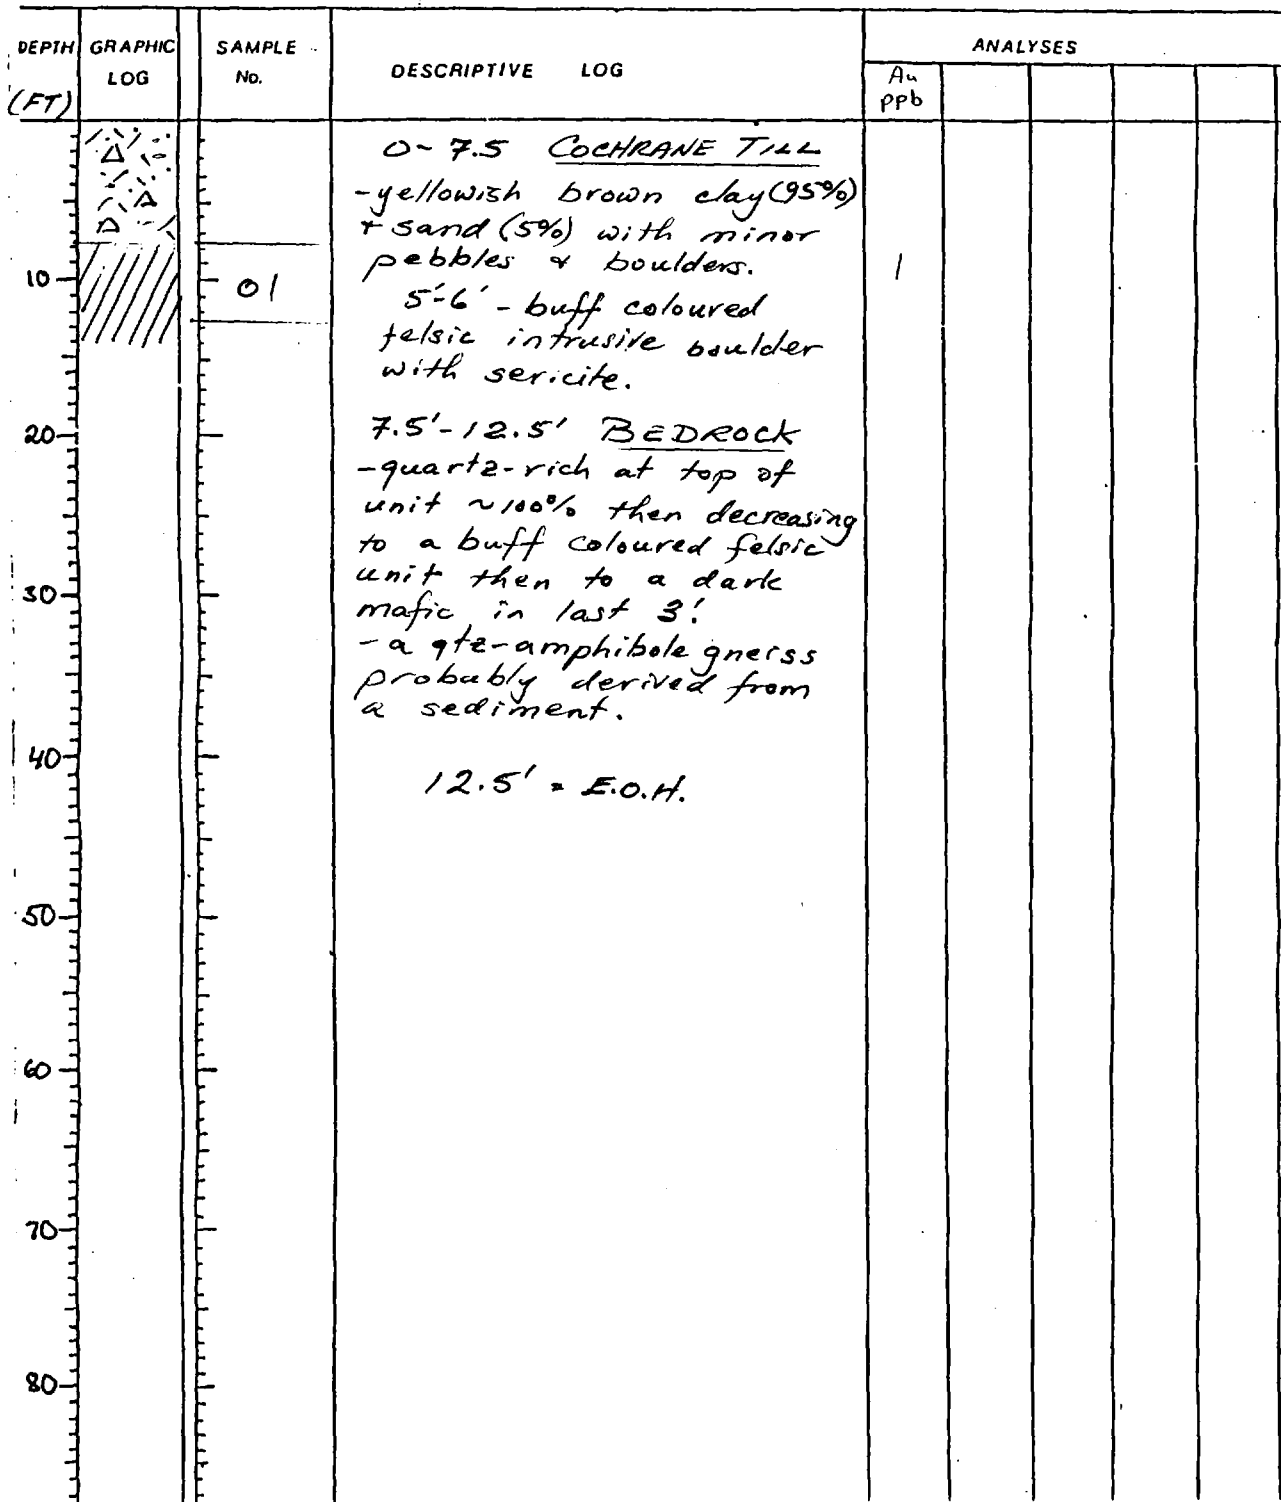 DEPTH GRAPHIC SAMPLE DESCRIPTIVE LOG ANALYSES
(FT) LOG No. Au
ppb
0-7.5 COCHRANE TILL
-yellowish brown clay (95%)
+ sand (5%) with minor
pebbles & boulders.
10 01 1
5'-6' - buff coloured
felsic intrusive boulder
with sericite.
20 7.5'-12.5' BEDROCK
-quartz-rich at top of
unit ~100% then decreasing
to a buff coloured felsic
30 unit then to a dark
mafic in last 3'.
-a qtz-amphibole gneiss
probably derived from
a sediment.
40
12.5' = E.O.H.
50
60
70
80